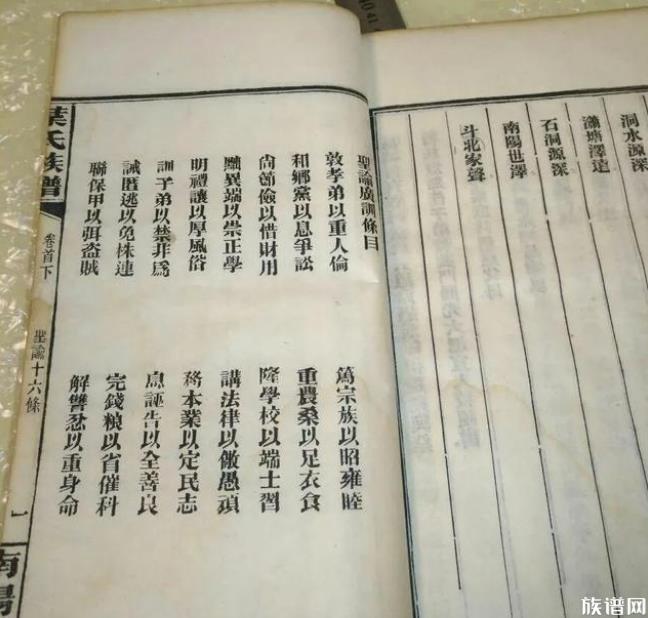 洞水源深
塘澤遠
石洞源深
南陽世澤
斗北家聲
聖諭廣訓條目
敦孝弟以重人倫
篤宗族以昭雍睦
和鄉黨以息爭訟
重農桑以足衣食
尙節儉以惜財用
隆學校以端士習
黜異端以崇正學
講法律以儆愚頑
明禮讓以厚風俗
務本業以定民志
訓子弟以禁非爲
息誣告以全善良
誡匿逃以免株連
完錢粮以省催科
聯保甲以弭盗賊
解讐忿以重身命
葉氏族譜
卷首下
聖諭十六條
一
南陽
族谱网